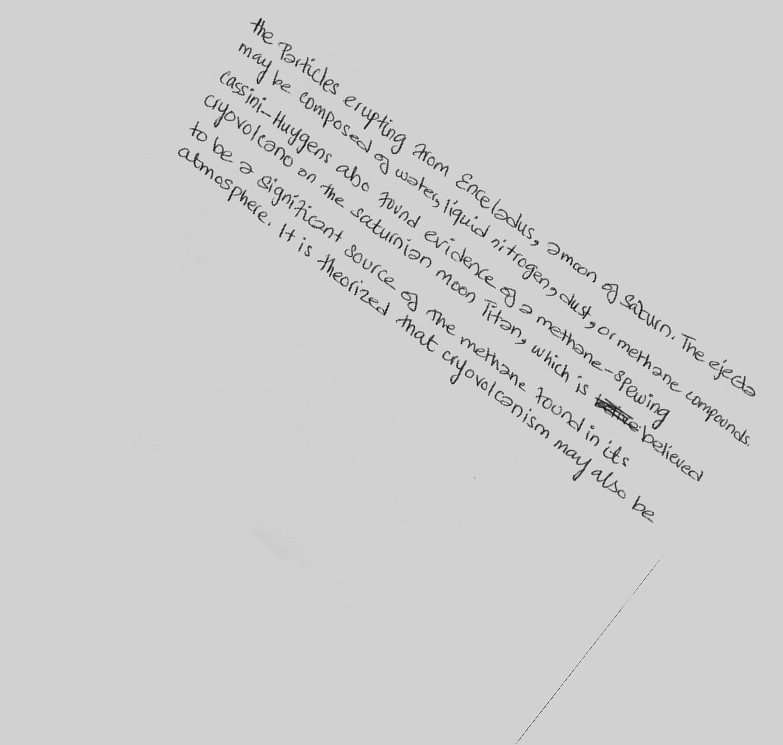 the Particles erupting from Enceladus, a moon of Saturn. The ejecta
may be composed of water, liquid nitrogen, dust, or methane compounds.
Cassini-Huygens also found evidence of a methane-spewing
cryovolcano on the saturnian moon Titan, which is believed
to be a significant source of the methane found in its
atmosphere. It is theorized that cryovolcanism may also be